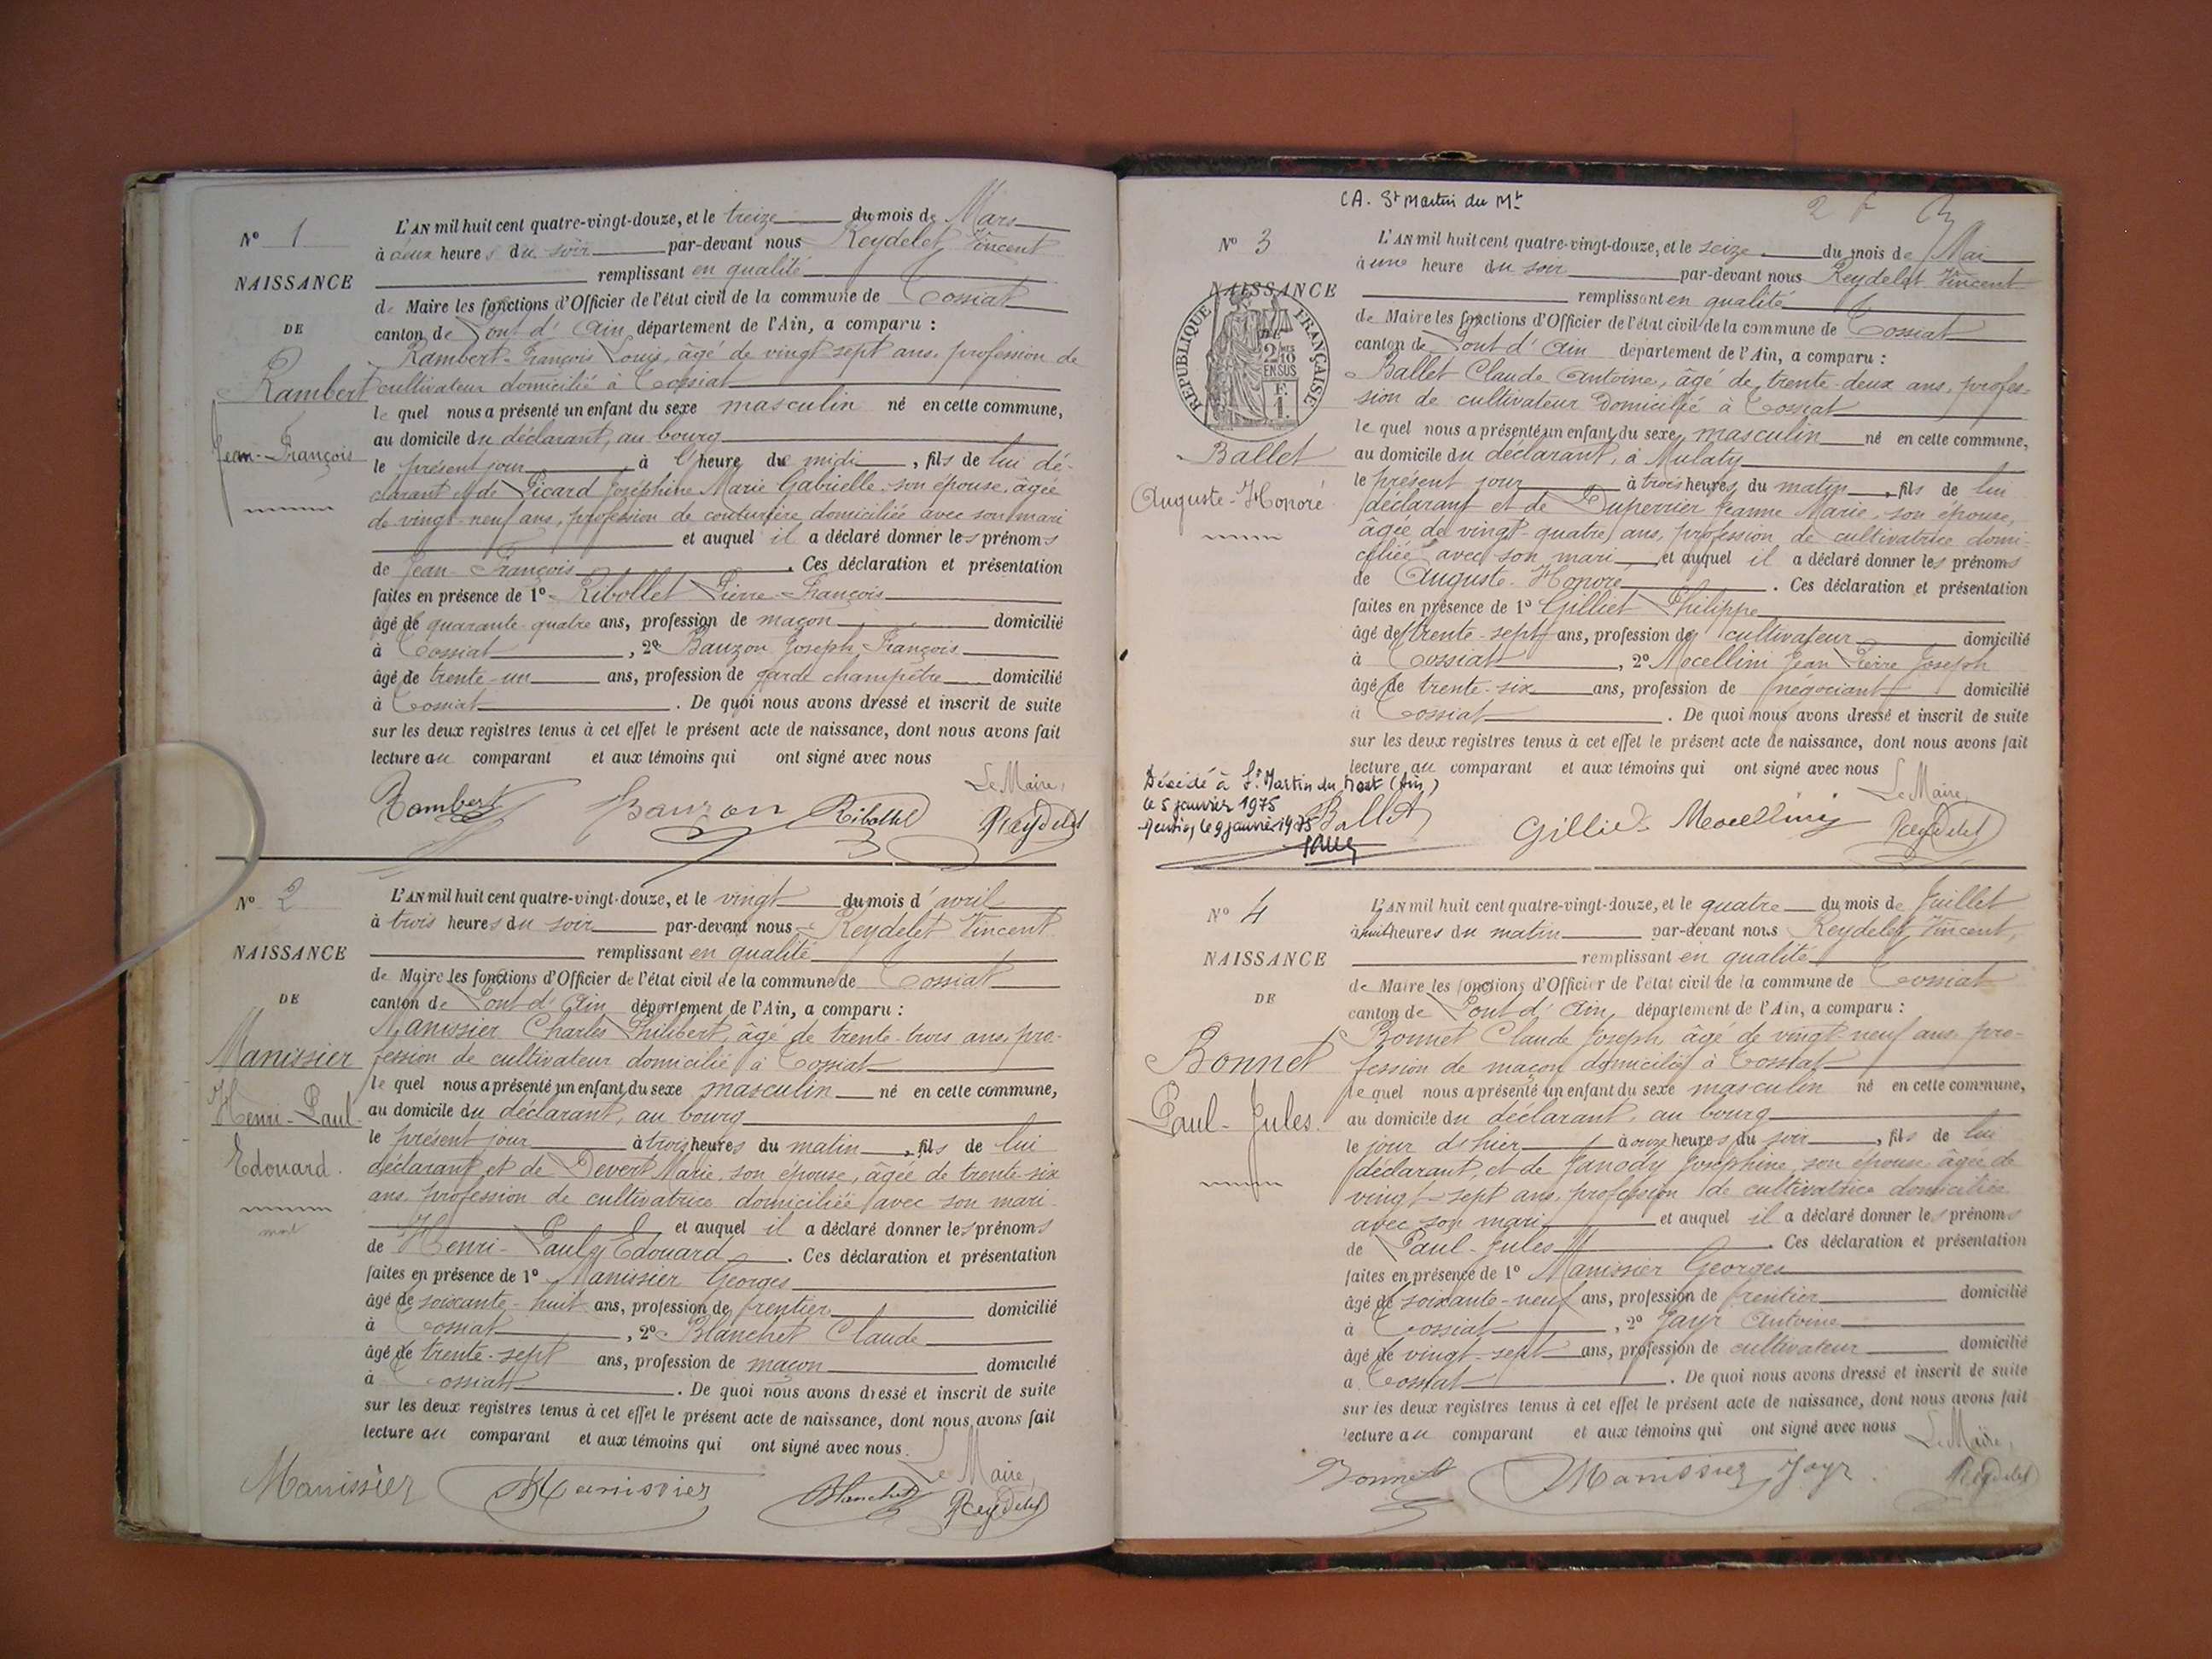 N° 1
NAISSANCE
DE
Rambert
Jean-François
L'AN mil huit cent quatre-vingt-douze, et le treize du mois de Mars
à deux heures du soir par-devant nous Reydelet Vincent
remplissant en qualité
de Maire les fonctions d'Officier de l'état civil de la commune de Tossiat
canton de Pont d'Ain, département de l'Ain, a comparu :
Rambert François Louis, âgé de vingt sept ans, profession de
cultivateur domicilié à Tossiat
le quel nous a présenté un enfant du sexe masculin né en cette commune,
au domicile du déclarant, au bourg
le présent jour à l'heure de midi, fils de lui dé-
clarant et de Picard Joséphine Marie Gabrielle, son épouse, âgée
de vingt neuf ans, profession de couturière domiciliée avec son mari
et auquel il a déclaré donner les prénoms
de Jean-François. Ces déclaration et présentation
faites en présence de 1° Ribollet Pierre-François
âgé de quarante quatre ans, profession de maçon domicilié
à Tossiat, 2° Bauzon Joseph François
âgé de trente-un ans, profession de garde champêtre domicilié
à Tossiat. De quoi nous avons dressé et inscrit de suite
sur les deux registres tenus à cet effet le présent acte de naissance, dont nous avons fait
lecture au comparant et aux témoins qui ont signé avec nous
Le Maire,
Rambert Bauzon Ribollet Reydelet
N° 2
NAISSANCE
DE
Manissier
Henri-Paul
Edouard.
mort
L'AN mil huit cent quatre-vingt-douze, et le vingt du mois d'avril
à trois heures du soir par-devant nous Reydelet Vincent
remplissant en qualité
de Maire les fonctions d'Officier de l'état civil de la commune de Tossiat
canton de Pont d'Ain département de l'Ain, a comparu :
Manissier Charles Philibert, âgé de trente-trois ans, pro-
fession de cultivateur domicilié à Tossiat
le quel nous a présenté un enfant du sexe masculin né en cette commune,
au domicile du déclarant, au bourg
le présent jour à trois heures du matin, fils de lui
déclarant et de Devert Marie, son épouse, âgée de trente-six
ans, profession de cultivatrice domiciliée avec son mari
et auquel il a déclaré donner les prénoms
de Henri-Paul Edouard. Ces déclaration et présentation
faites en présence de 1° Manissier Georges
âgé de soixante-huit ans, profession de rentier domicilié
à Tossiat, 2° Blanchet Claude
âgé de trente-sept ans, profession de maçon domicilié
à Tossiat. De quoi nous avons dressé et inscrit de suite
sur les deux registres tenus à cet effet le présent acte de naissance, dont nous avons fait
lecture au comparant et aux témoins qui ont signé avec nous.
Le Maire,
Manissier Manissier Blanchet Reydelet
CA. St Martin du Mt
2 f
N° 3
NAISSANCE
DE
RÉPUBLIQUE FRANÇAISE
2/10MES
EN SUS
F.
1.
Ballet
Auguste-Honoré
L'AN mil huit cent quatre-vingt-douze, et le seize du mois de Mai
à une heure du soir par-devant nous Reydelet Vincent
remplissant en qualité
de Maire les fonctions d'Officier de l'état civil de la commune de Tossiat
canton de Pont d'Ain département de l'Ain, a comparu :
Ballet Claude Antoine, âgé de trente-deux ans, profes-
sion de cultivateur domicilié à Tossiat
le quel nous a présenté un enfant du sexe masculin né en cette commune,
au domicile du déclarant, à Mulaty
le présent jour à trois heures du matin, fils de lui
déclarant et de Duperrier Jeanne Marie, son épouse,
âgée de vingt-quatre ans, profession de cultivatrice domi-
ciliée avec son mari et auquel il a déclaré donner les prénoms
de Auguste-Honoré. Ces déclaration et présentation
faites en présence de 1° Gilliet Philippe
âgé de trente-sept ans, profession de cultivateur domicilié
à Tossiat, 2° Mocellini Jean Pierre Joseph
âgé de trente-six ans, profession de négociant domicilié
à Tossiat. De quoi nous avons dressé et inscrit de suite
sur les deux registres tenus à cet effet le présent acte de naissance, dont nous avons fait
lecture au comparant et aux témoins qui ont signé avec nous
Le Maire,
Décédé à St Martin du Mont (Ain)
le 5 janvier 1975
Mention le 9 janvier 1975
Ballet Gilliet Mocellini Reydelet
N° 4
NAISSANCE
DE
Bonnet
Paul-Jules.
L'AN mil huit cent quatre-vingt-douze, et le quatre du mois de Juillet
à huit heures du matin par-devant nous Reydelet Vincent,
remplissant en qualité
de Maire les fonctions d'Officier de l'état civil de la commune de Tossiat
canton de Pont d'Ain, département de l'Ain, a comparu :
Bonnet Claude Joseph, âgé de vingt-neuf ans, pro-
fession de maçon domicilié à Tossiat
le quel nous a présenté un enfant du sexe masculin né en cette commune,
au domicile du déclarant, au bourg
le jour d'hier à onze heures du soir, fils de lui
déclarant, et de Janody Joséphine son épouse âgée de
vingt-sept ans, profession de cultivatrice domiciliée
avec son mari et auquel il a déclaré donner les prénoms
de Paul-Jules. Ces déclaration et présentation
faites en présence de 1° Manissier Georges
âgé de soixante-neuf ans, profession de rentier domicilié
à Tossiat, 2° Jayr Antoine
âgé de vingt-sept ans, profession de cultivateur domicilié
à Tossiat. De quoi nous avons dressé et inscrit de suite
sur les deux registres tenus à cet effet le présent acte de naissance, dont nous avons fait
lecture au comparant et aux témoins qui ont signé avec nous
Le Maire,
Bonnet Manissier Jayr. Reydelet